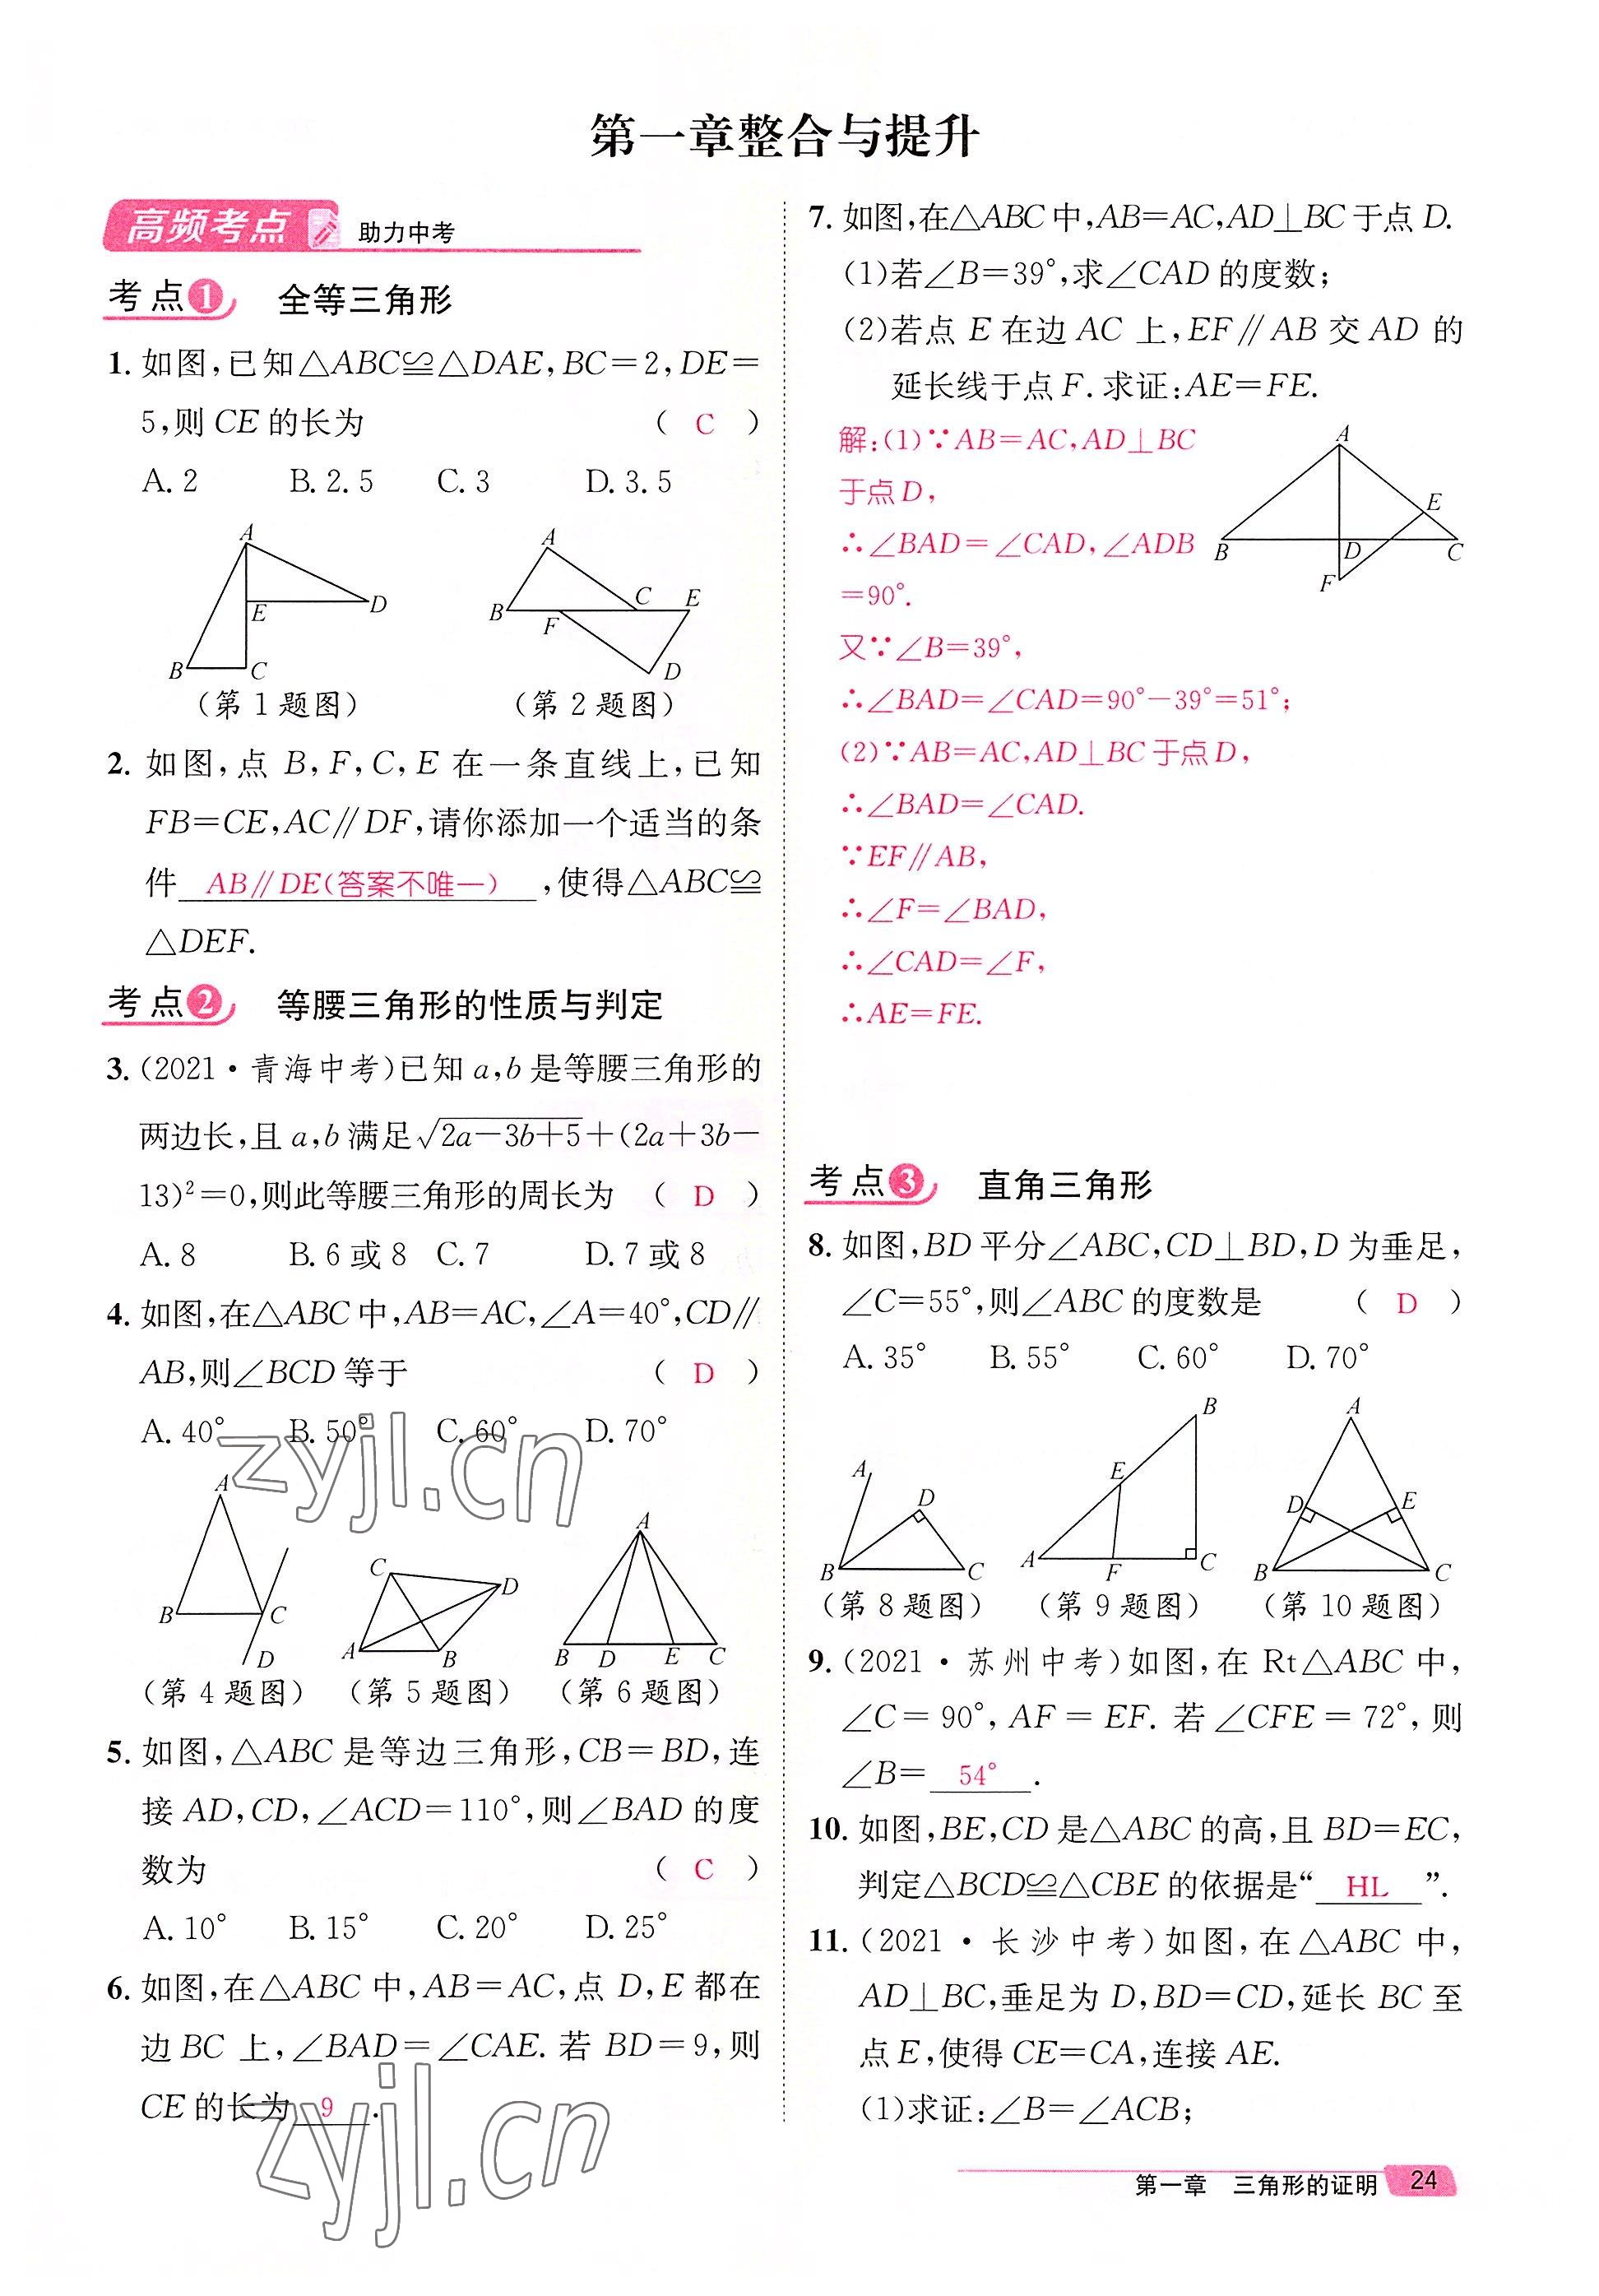 第一章整合与提升
高频考点 助力中考
考点1 全等三角形
1. 如图,已知△ABC≌△DAE,BC=2,DE=
5,则CE的长为 ( C )
A. 2 B. 2.5 C. 3 D. 3.5
A E D B C
A B F C E D
(第1题图) (第2题图)
2. 如图,点 B,F,C,E 在一条直线上,已知
FB=CE,AC∥DF,请你添加一个适当的条
件 AB∥DE(答案不唯一) ,使得△ABC≌
△DEF.
考点2 等腰三角形的性质与判定
3. (2021·青海中考)已知a,b是等腰三角形的
两边长,且a,b满足√(2a-3b+5)+(2a+3b-
13)²=0,则此等腰三角形的周长为 ( D )
A. 8 B. 6或8 C. 7 D. 7或8
4. 如图,在△ABC中,AB=AC,∠A=40°,CD∥
AB,则∠BCD等于 ( D )
A. 40° B. 50° C. 60° D. 70°
zyjl.cn
A B C D
C D A B
A B D E C
(第4题图) (第5题图) (第6题图)
5. 如图,△ABC是等边三角形,CB=BD,连
接AD,CD,∠ACD=110°,则∠BAD的度
数为 ( C )
A. 10° B. 15° C. 20° D. 25°
6. 如图,在△ABC中,AB=AC,点D,E都在
边BC上,∠BAD=∠CAE.若BD=9,则
CE的长为 9 .
zyjl.cn
7. 如图,在△ABC中,AB=AC,AD⊥BC于点D.
(1)若∠B=39°,求∠CAD的度数;
(2)若点E在边AC上,EF∥AB交AD的
延长线于点F.求证:AE=FE.
解:(1)∵AB=AC,AD⊥BC
于点D,
∴∠BAD=∠CAD,∠ADB
=90°.
又∵∠B=39°,
∴∠BAD=∠CAD=90°-39°=51°;
(2)∵AB=AC,AD⊥BC于点D,
∴∠BAD=∠CAD.
∵EF∥AB,
∴∠F=∠BAD,
∴∠CAD=∠F,
∴AE=FE.
A E B D C F
考点3 直角三角形
8. 如图,BD平分∠ABC,CD⊥BD,D为垂足,
∠C=55°,则∠ABC的度数是 ( D )
A. 35° B. 55° C. 60° D. 70°
A D B C
B E A F C
A D E B C
(第8题图) (第9题图) (第10题图)
9. (2021·苏州中考)如图,在Rt△ABC中,
∠C=90°,AF=EF.若∠CFE=72°,则
∠B= 54° .
10. 如图,BE,CD是△ABC的高,且BD=EC,
判定△BCD≌△CBE的依据是“ HL ”.
11. (2021·长沙中考)如图,在△ABC中,
AD⊥BC,垂足为D,BD=CD,延长BC至
点E,使得CE=CA,连接AE.
(1)求证:∠B=∠ACB;
第一章 三角形的证明 24